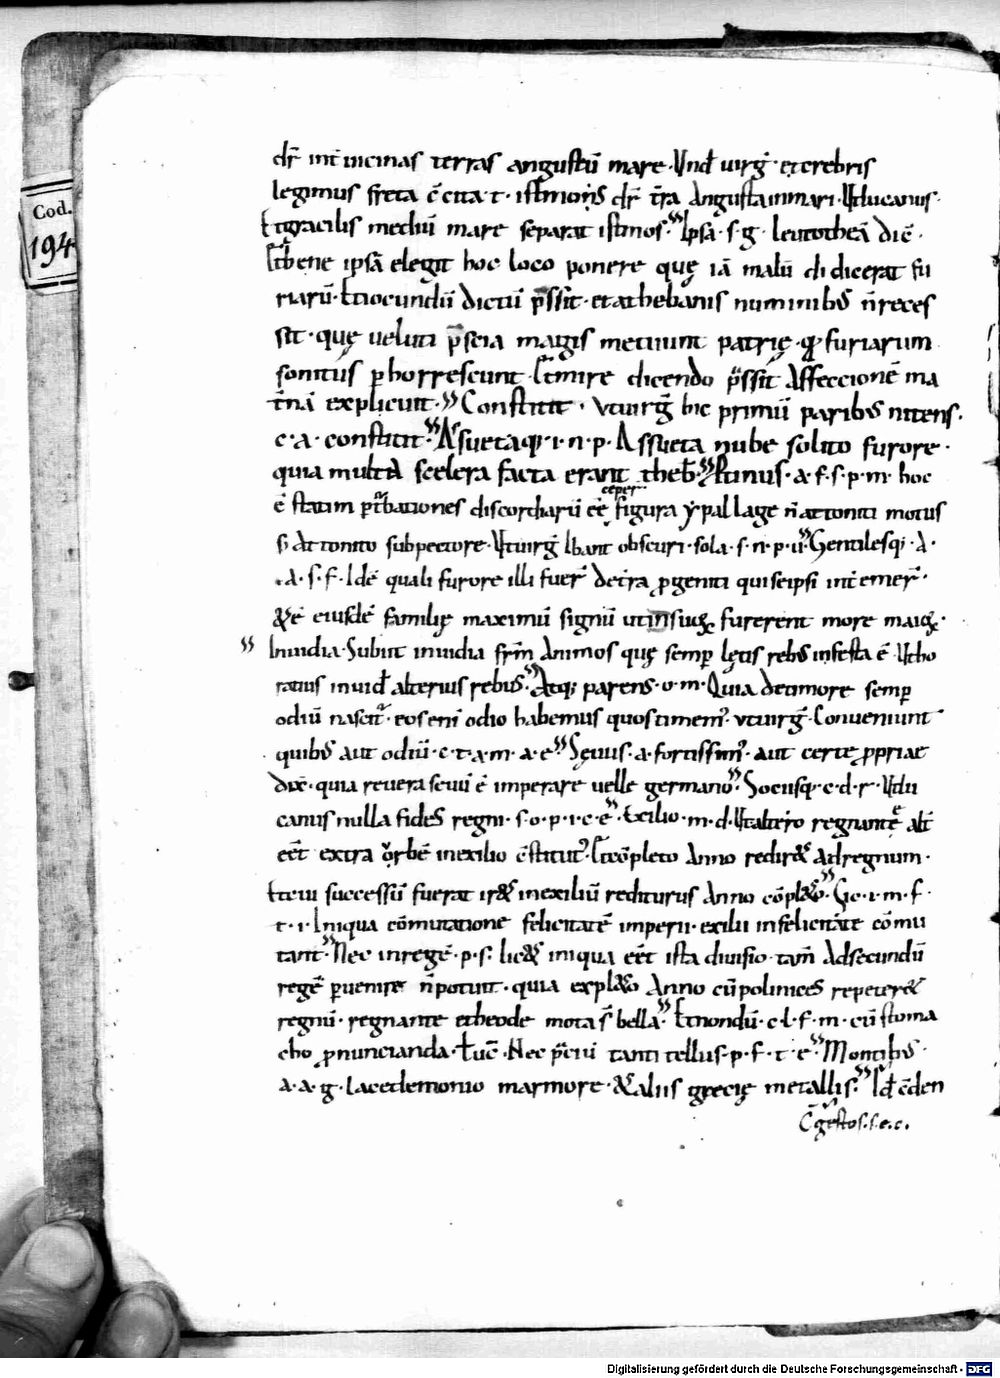 Cod.
194
dr̄ int̄ uicinas terras angustū mare · Und̄ uirḡ · et crebris
legimus freta c̄cita · t · istmoꝰs dr̄ t̄ra angusta in mari · Ut lucanus ·
Et gracilis mediū mare separat istmos · Ipsā · s · g · leucotheā dic̄ ·
bene ipsā elegit hoc loco ponere quę iā malū didicerat fu
riarū · Et iocundū dictū p̄ssit · et a thebanis numinibꝰ n̄ reces
sit · quę ueluti p̄scia magis metuunt patrię · qꝫ furiarum
sonitus ꝑhorrescunt · mire dicendo p̄ssit Affeccionē ma
t̄nā explicuit · Constitit · ut uirg̅ hic primū paribꝰ nitens ·
c · a · constitit · Assuetaqꝫ · i · n · p · Assueta nube solito furore ·
quia multa scelera facta erant theb̄ · Ptinus · a · f · s · p · m · hoc
ē statim ꝑt̄bationes discordiarū cep̄ ēē figura ypallage n̄ attoniti motus
s; Attonito sub pectore · Ut uirḡ Ibant obscuri · sola · s · n · p · u · Gentilesqꝫ · a ·
· a · s · f · Idē quali furore illi fuer̄ de t̄ra ꝓgeniti qui se ipsi int̄emer̄ ·
& ē eiusdē familię maximū signū ut in suꝫ furerent more maioꝝ ·
Inuidia · Subiit inuidia frm̄ animos quę semꝑ lętis rebꝰ infesta ē · Ut ho
ratius inuid̄ alterius rebus · Atqꝫ parens · o · m · Quia de timore semꝑ
odiū nascit̄ · eos eni odio habemus quos timemꝰ · ut uirḡ · Conueniunt
quibꝰ aut odiū · c · t · a · m · a · e · Sęuus · a · fortissimꝰ · aut certe ꝓpriae
dix̄ · quia reuera seuū ē imperare uelle germano · Sociisqꝫ · c · d · r · Ut lu
canus nulla fides regni · s · o · p · i · c · e · Exilio · m · d · Ut altero regnante alt̄
eēt extra orbē in exilio c̄stitutꝰ · c̄pleto anno redir& ad regnum ·
Et cui successū fuerat ir& in exiliū rediturus anno c̄pl&o · Sic · i · m · f ·
t · i · Iniqua cōmutatione felicitatē imperii · exilii infelicitate cōmu
tant · Nec in regē · p · s · lic& iniqua eēt ista diuisio tam̄ Ad secundū
regē ꝑuenire n̄ potuit · quia expl&o Anno cū polinices repeter&
regnū · regnante etheode mota s̄ bella · Et nondū · c · l · f · m · cū stoma
cho ꝓnuncianda · Luc̄ · Nec p̄cii tanti tellus · p · f · t · e · Montibꝰ ·
a · a · g · lacedemonio marmore · & aliis grecię metallis · Id̄ c̄den
C̄gestos · s · e · c ·
Digitalisierung gefördert durch die Deutsche Forschungsgemeinschaft - DFG